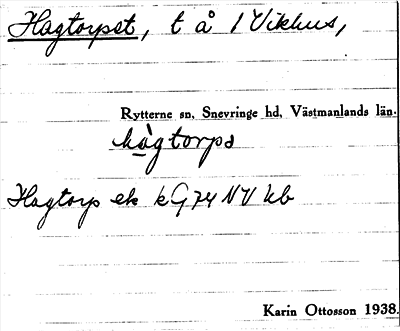 Hagtorpet, t å 1 Vikhus,
Rytterne sn, Snevringe hd, Västmanlands län.
hàgtorpə
Hagtorp ek kG74 NV Ub
Karin Ottosson 1938.